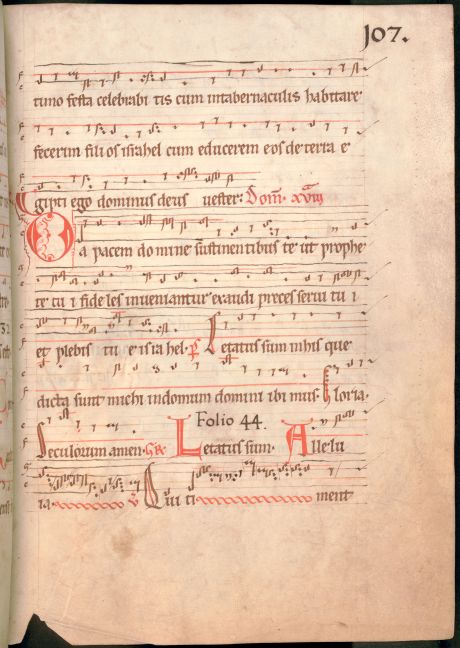 107.
timo festa celebrabi tis cum intabernaculis habitare
fecerim fili os israhel cum educerem eos de terra e
gipti ego dominus deus uester: Dom. xviii
Da pacem domine sustinentibus te ut prophe
te tu i fide les inueniantur exaudi preces serui tu i
et plebis tu e is ra hel. ps Letatus sum inhis que
dicta sunt michi indomum domini ibi mus. Gloria.
Seculorum amen. Letatus sum. Alle lu
Folio 44.
ia. v Qui ti ment